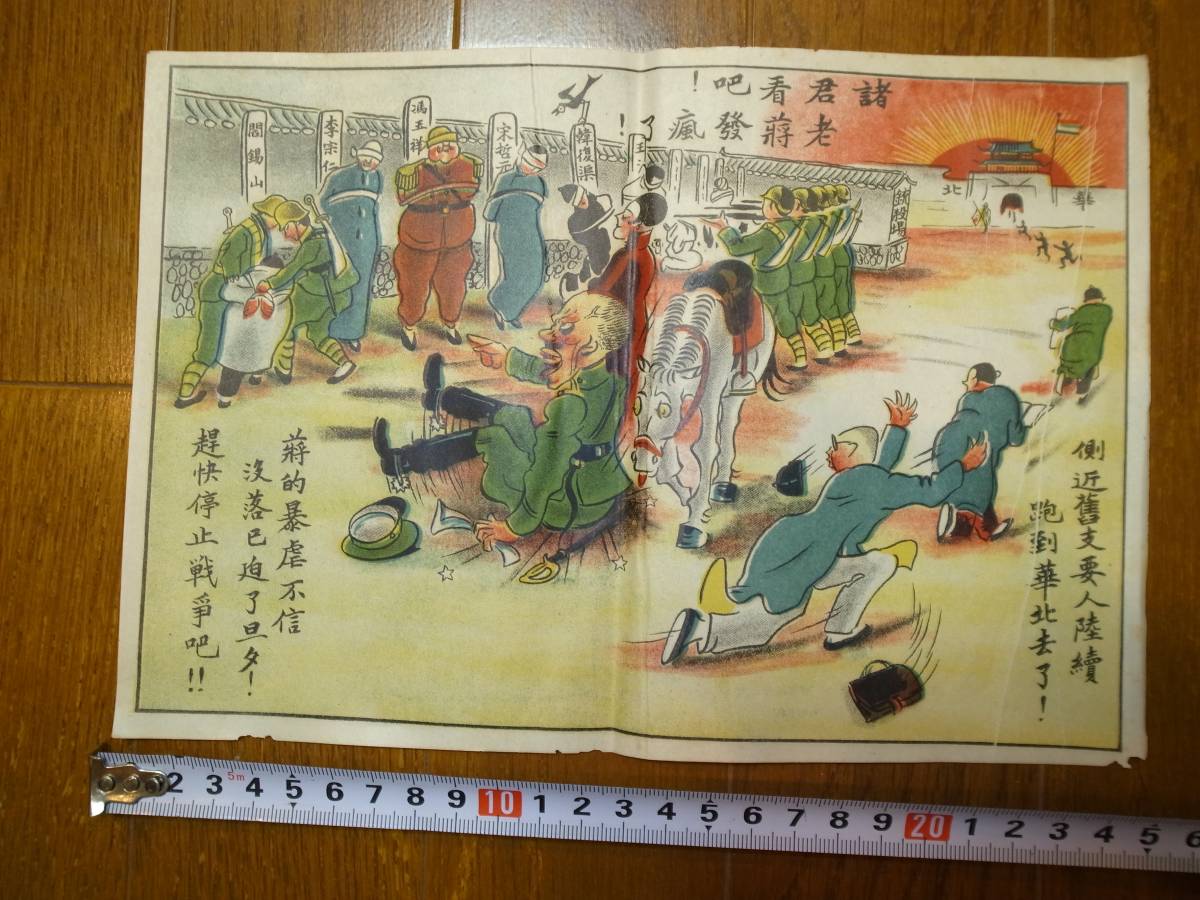 諸君看吧!
老蔣發瘋了!
華北
銃殺場
韓復渠
宋哲元
馮玉祥
李宗仁
閻錫山
側近舊支要人陸續
跑到華北去了!
蔣的暴虐不信
沒落已迫了旦夕!
趕快停止戦爭吧!!
2 3 5m 4 5 6 7 8 9 10 1 2 3 4 5 6 7 8 9 20 1 2 3 4 5 6